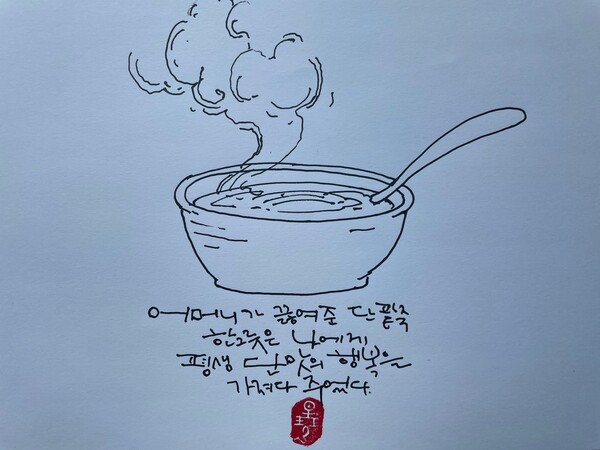 어머니가 끓여준 단팥죽
한그릇은 나에게
평생 단맛의 행복을
가져다 주었다.